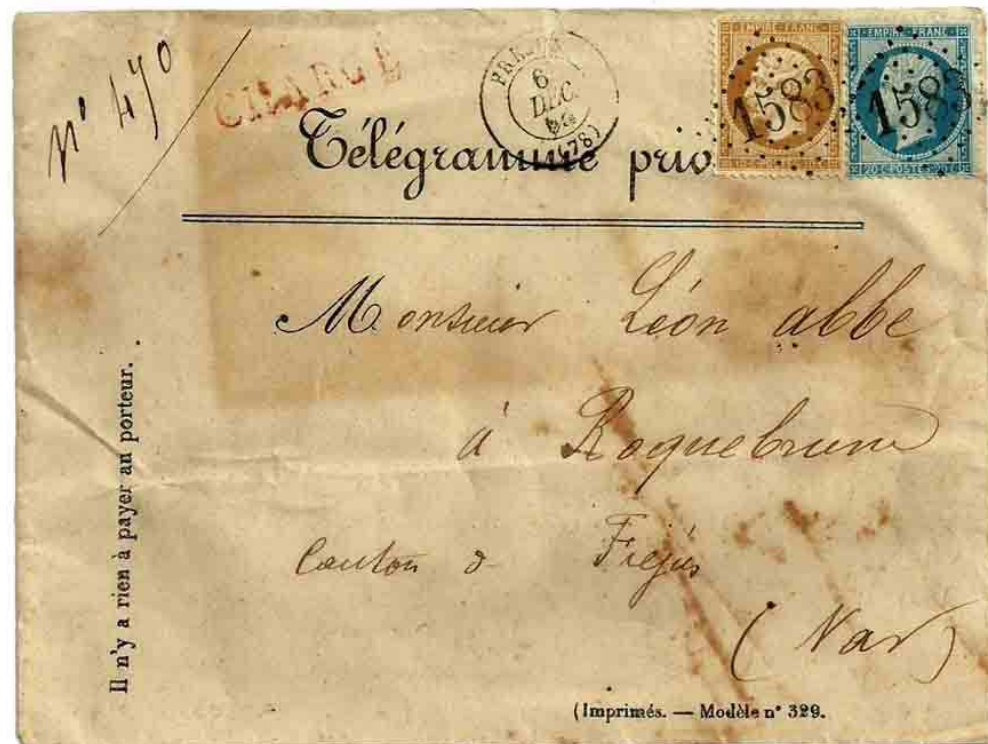 n° 470
CHARGÉ
6
DÉC.
(78)
EMPIRE FRANC
1583
EMPIRE FRANC
20 C POSTE 20 C
1583
Télégramme privé
Monsieur Léon abbe
à Roquebrune
Canton d Frejus
(Var)
Il n'y a rien à payer au porteur.
(Imprimés. — Modèle n° 329.